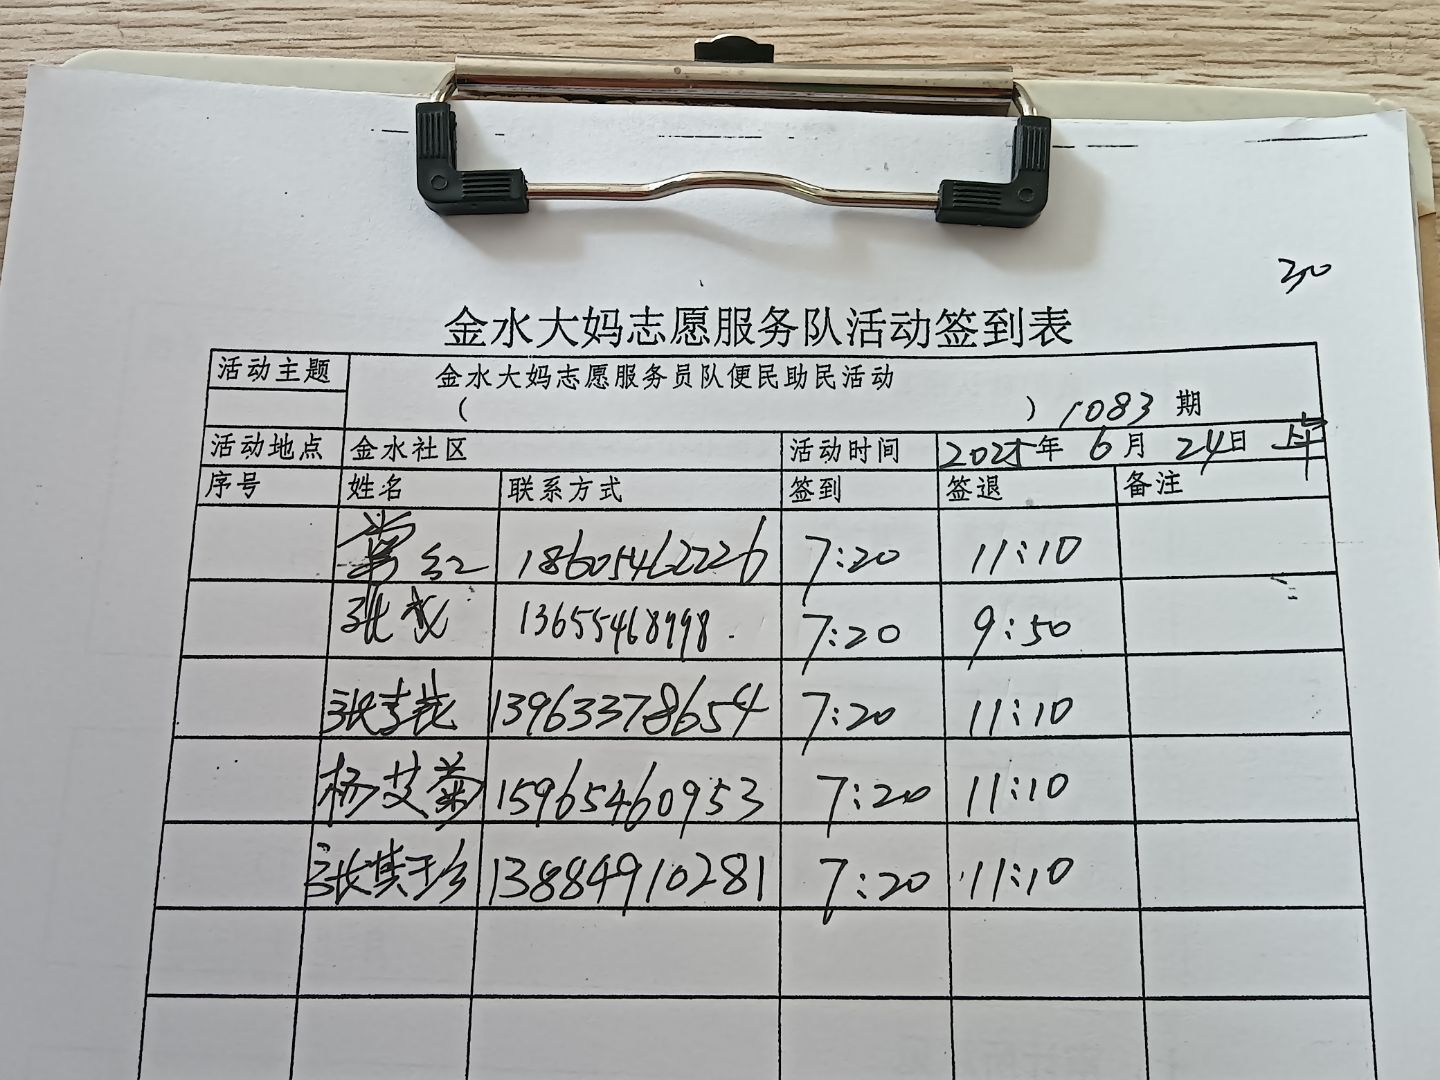 金水大妈志愿服务队活动签到表
活动主题 金水大妈志愿服务员队便民助民活动
( ) 1083 期
活动地点 金水社区 活动时间 2025年 6月 24日 上午
序号 姓名 联系方式 签到 签退 备注
红 18605462226 7:20 11:10
张 13655468998 7:20 9:50
张 13963378654 7:20 11:10
杨艾菊 15965460953 7:20 11:10
张其珍 13884910281 7:20 11:10